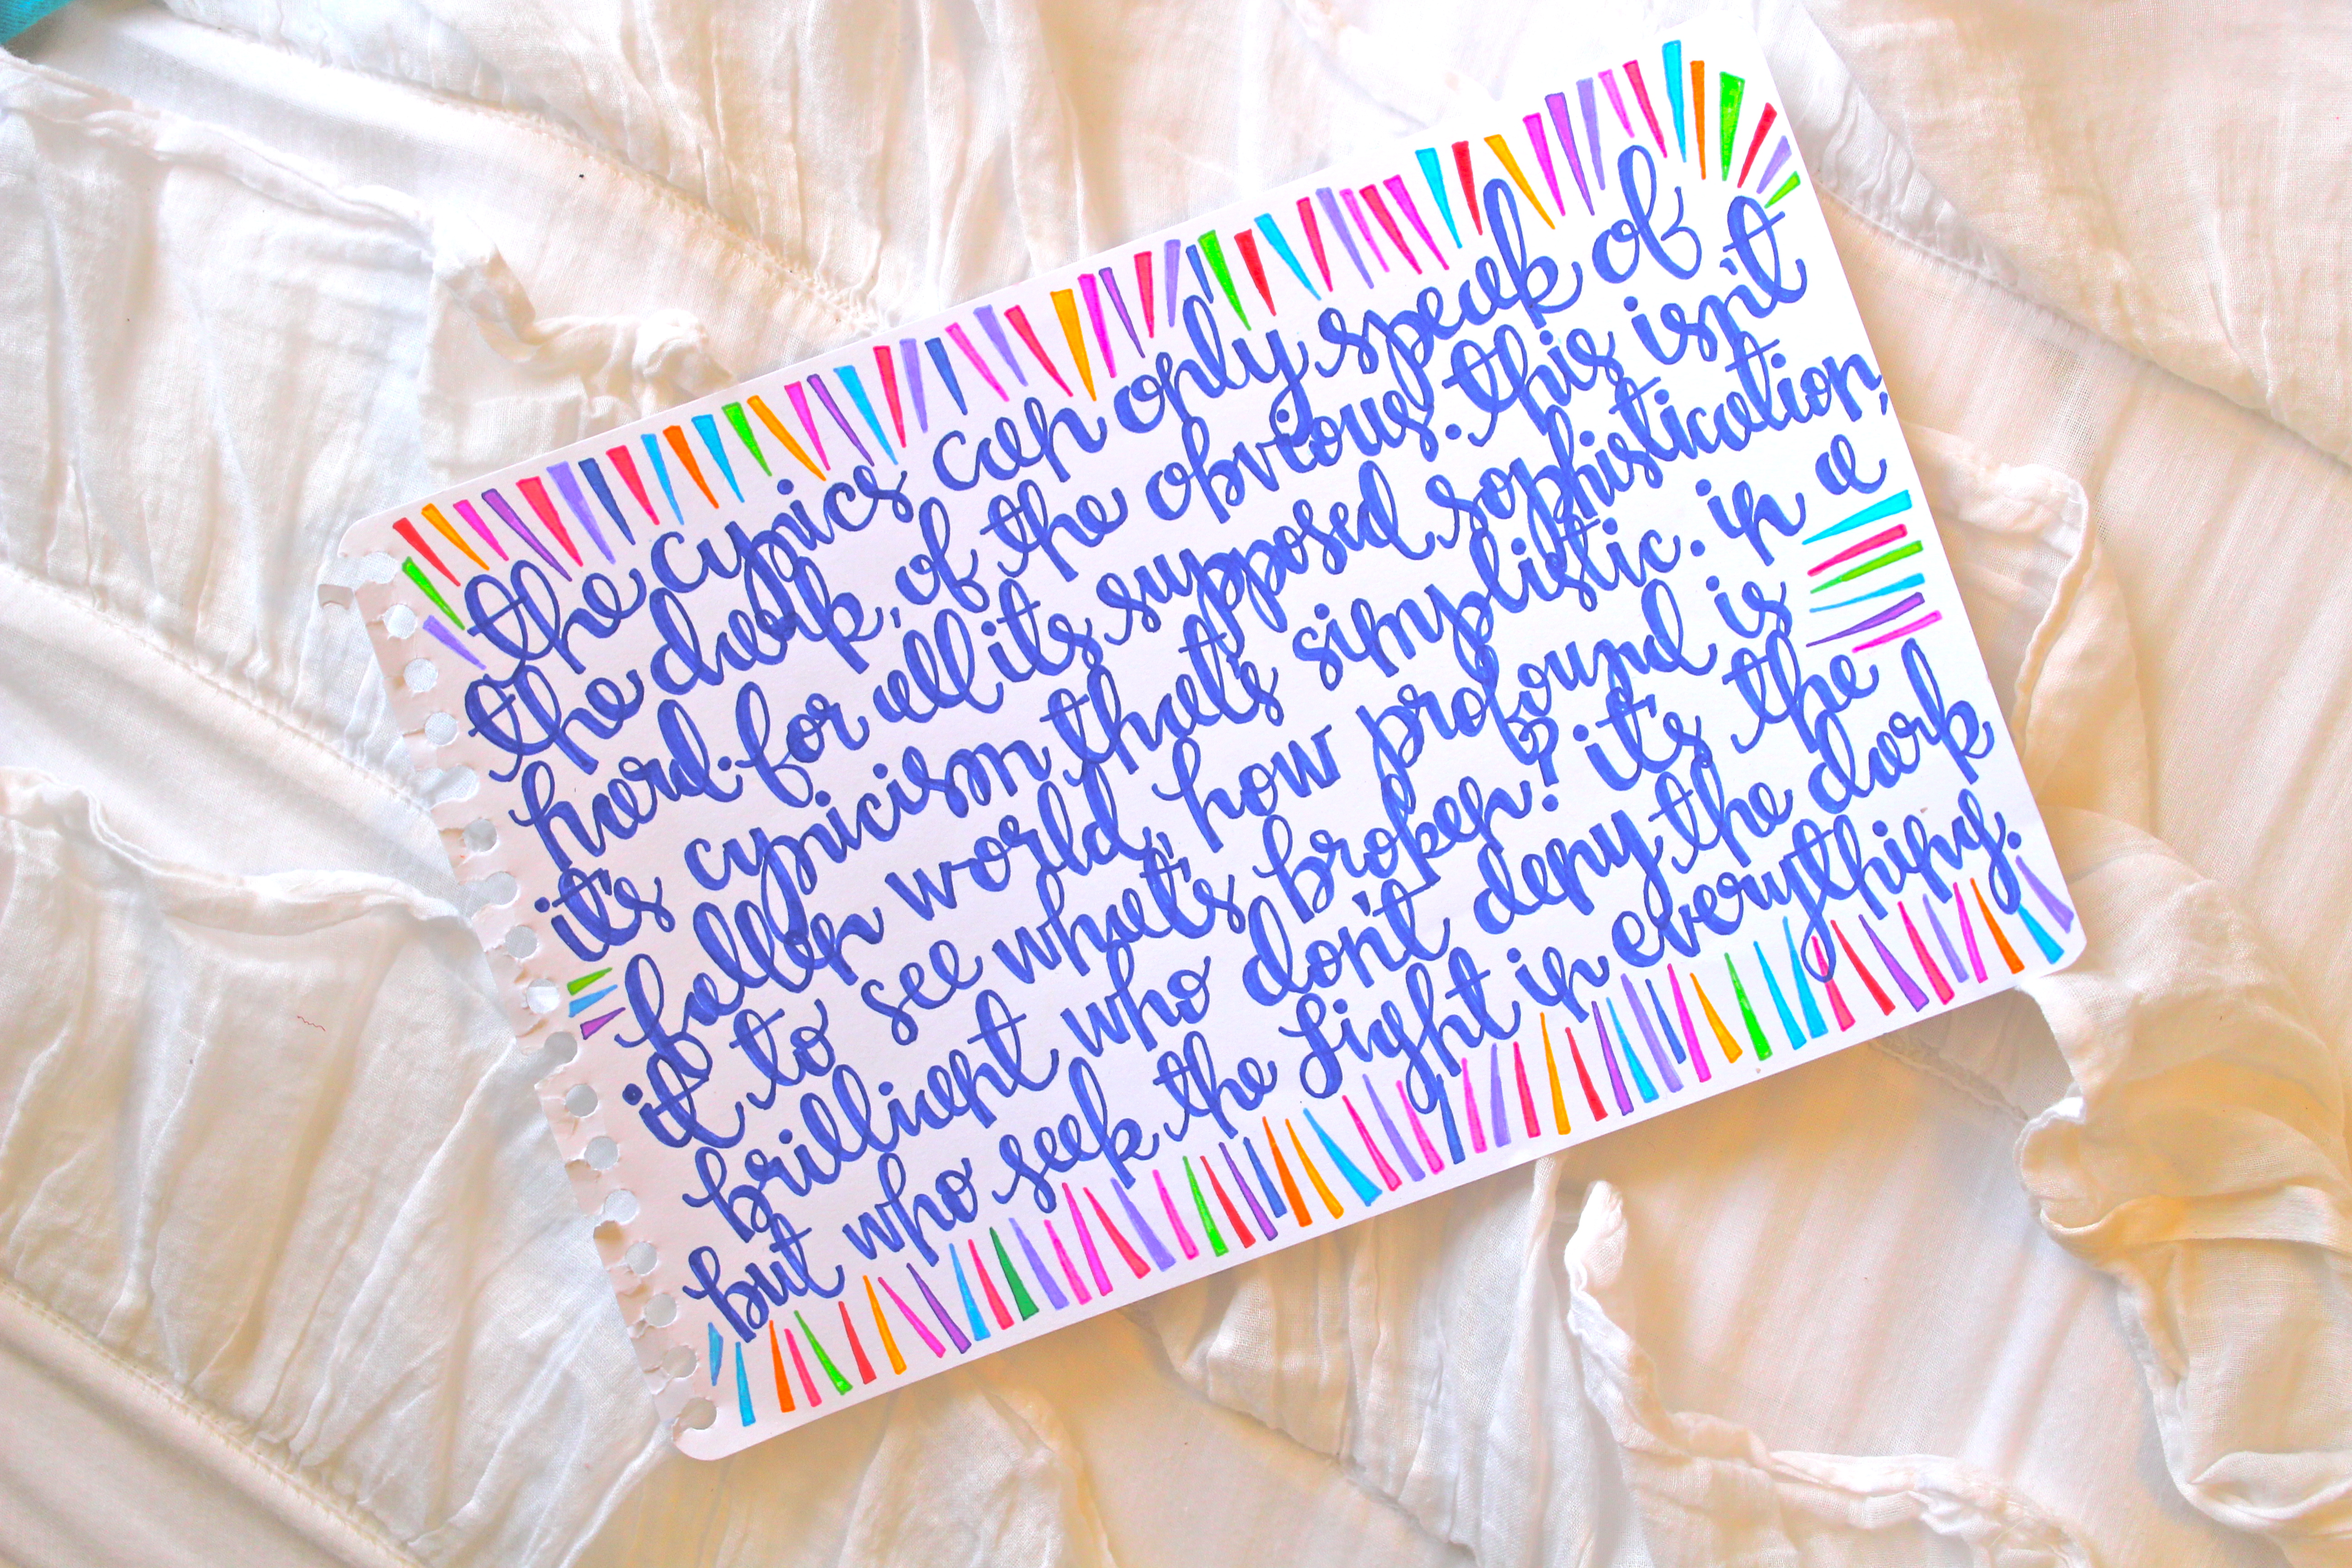 the cynics can only speak of
the dark, of the obvious. this isn't
hard. for all its supposed sophistication,
it's cynicism that's simplistic. in a
fallen world, how profound is
it to see what's broken? it's the
brilliant who don't deny the dark
but who seek the Light in everything.